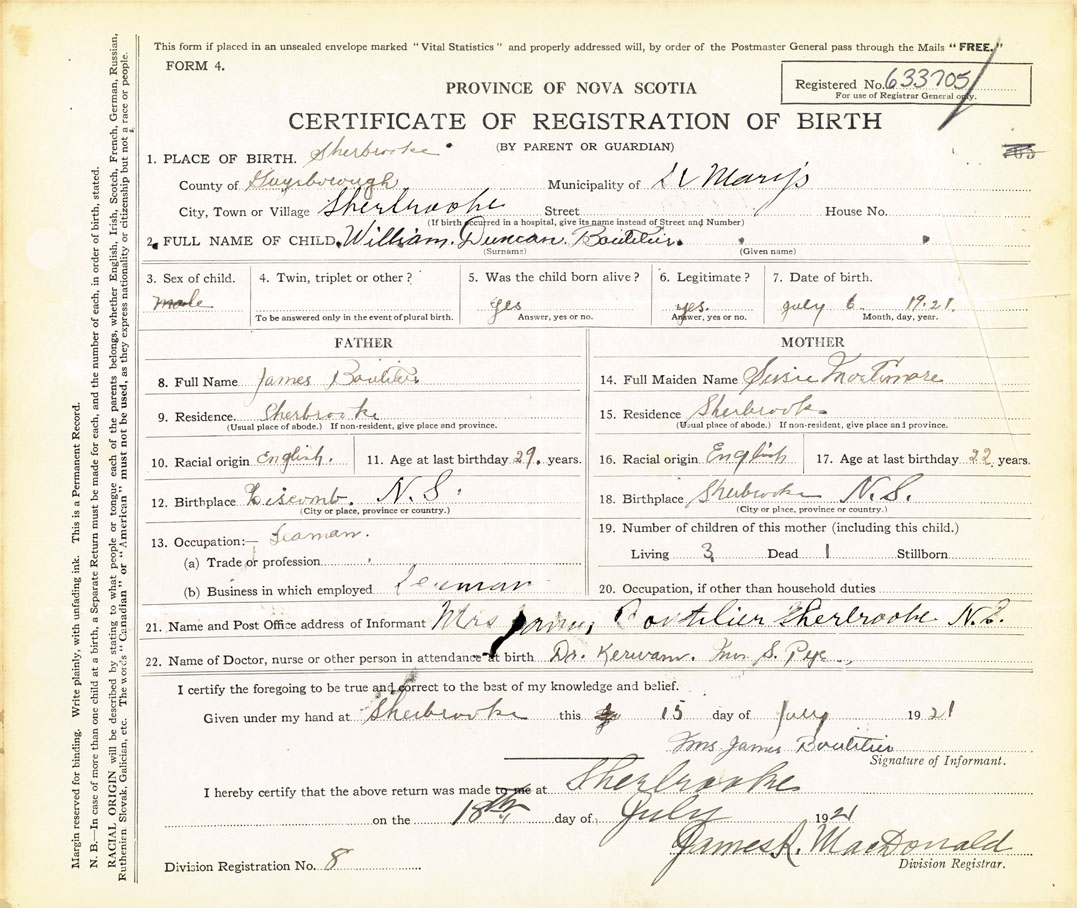 This form if placed in an unsealed envelope marked "Vital Statistics" and properly addressed will, by order of the Postmaster General pass through the Mails "FREE."
FORM 4.
Registered No. 633705
For use of Registrar General only.
PROVINCE OF NOVA SCOTIA
CERTIFICATE OF REGISTRATION OF BIRTH
(BY PARENT OR GUARDIAN)
1. PLACE OF BIRTH. Sherbrooke
County of Guysborough Municipality of St Mary's
City, Town or Village Sherbrooke Street House No.
(If birth occurred in a hospital, give its name instead of Street and Number)
2. FULL NAME OF CHILD William Duncan Boutilier
(Surname) (Given name)
3. Sex of child. 4. Twin, triplet or other? 5. Was the child born alive? 6. Legitimate? 7. Date of birth.
male yes yes. July 6 1921
To be answered only in the event of plural birth. Answer, yes or no. Answer, yes or no. Month, day, year.
FATHER
8. Full Name James Boutilier
9. Residence. Sherbrooke
(Usual place of abode.) If non-resident, give place and province.
10. Racial origin English. 11. Age at last birthday 29. years.
12. Birthplace Liscomb. N.S.
(City or place, province or country.)
13. Occupation:— Seaman.
(a) Trade or profession
(b) Business in which employed Seaman
MOTHER
14. Full Maiden Name Susie Mortimore
15. Residence Sherbrooke
(Usual place of abode.) If non-resident, give place and province.
16. Racial origin English 17. Age at last birthday 22 years.
18. Birthplace Sherbrooke N.S.
(City or place, province or country.)
19. Number of children of this mother (including this child.)
Living 3 Dead 1 Stillborn
20. Occupation, if other than household duties
21. Name and Post Office address of Informant Mrs James Boutilier Sherbrooke N.S.
22. Name of Doctor, nurse or other person in attendance at birth Dr. Kerwam. Mrs S. Pye
I certify the foregoing to be true and correct to the best of my knowledge and belief.
Given under my hand at Sherbrooke this 15 day of July 1921
Mrs James Boutilier
Signature of Informant.
I hereby certify that the above return was made to me at Sherbrooke
on the 18th day of July 1921
James R. MacDonald
Division Registration No. 8 Division Registrar.
Margin reserved for binding. Write plainly, with unfading ink. This is a Permanent Record.
N. B.—In case of more than one child at a birth, a Separate Return must be made for each, and the number of each, in order of birth, stated.
RACIAL ORIGIN will be described by stating to what people or tongue each of the parents belongs, whether English, Irish, Scotch, French, German, Russian,
Ruthenian, Slovak, Galician, etc. The words "Canadian" or "American" must not be used, as they express nationality or citizenship but not a race or people.